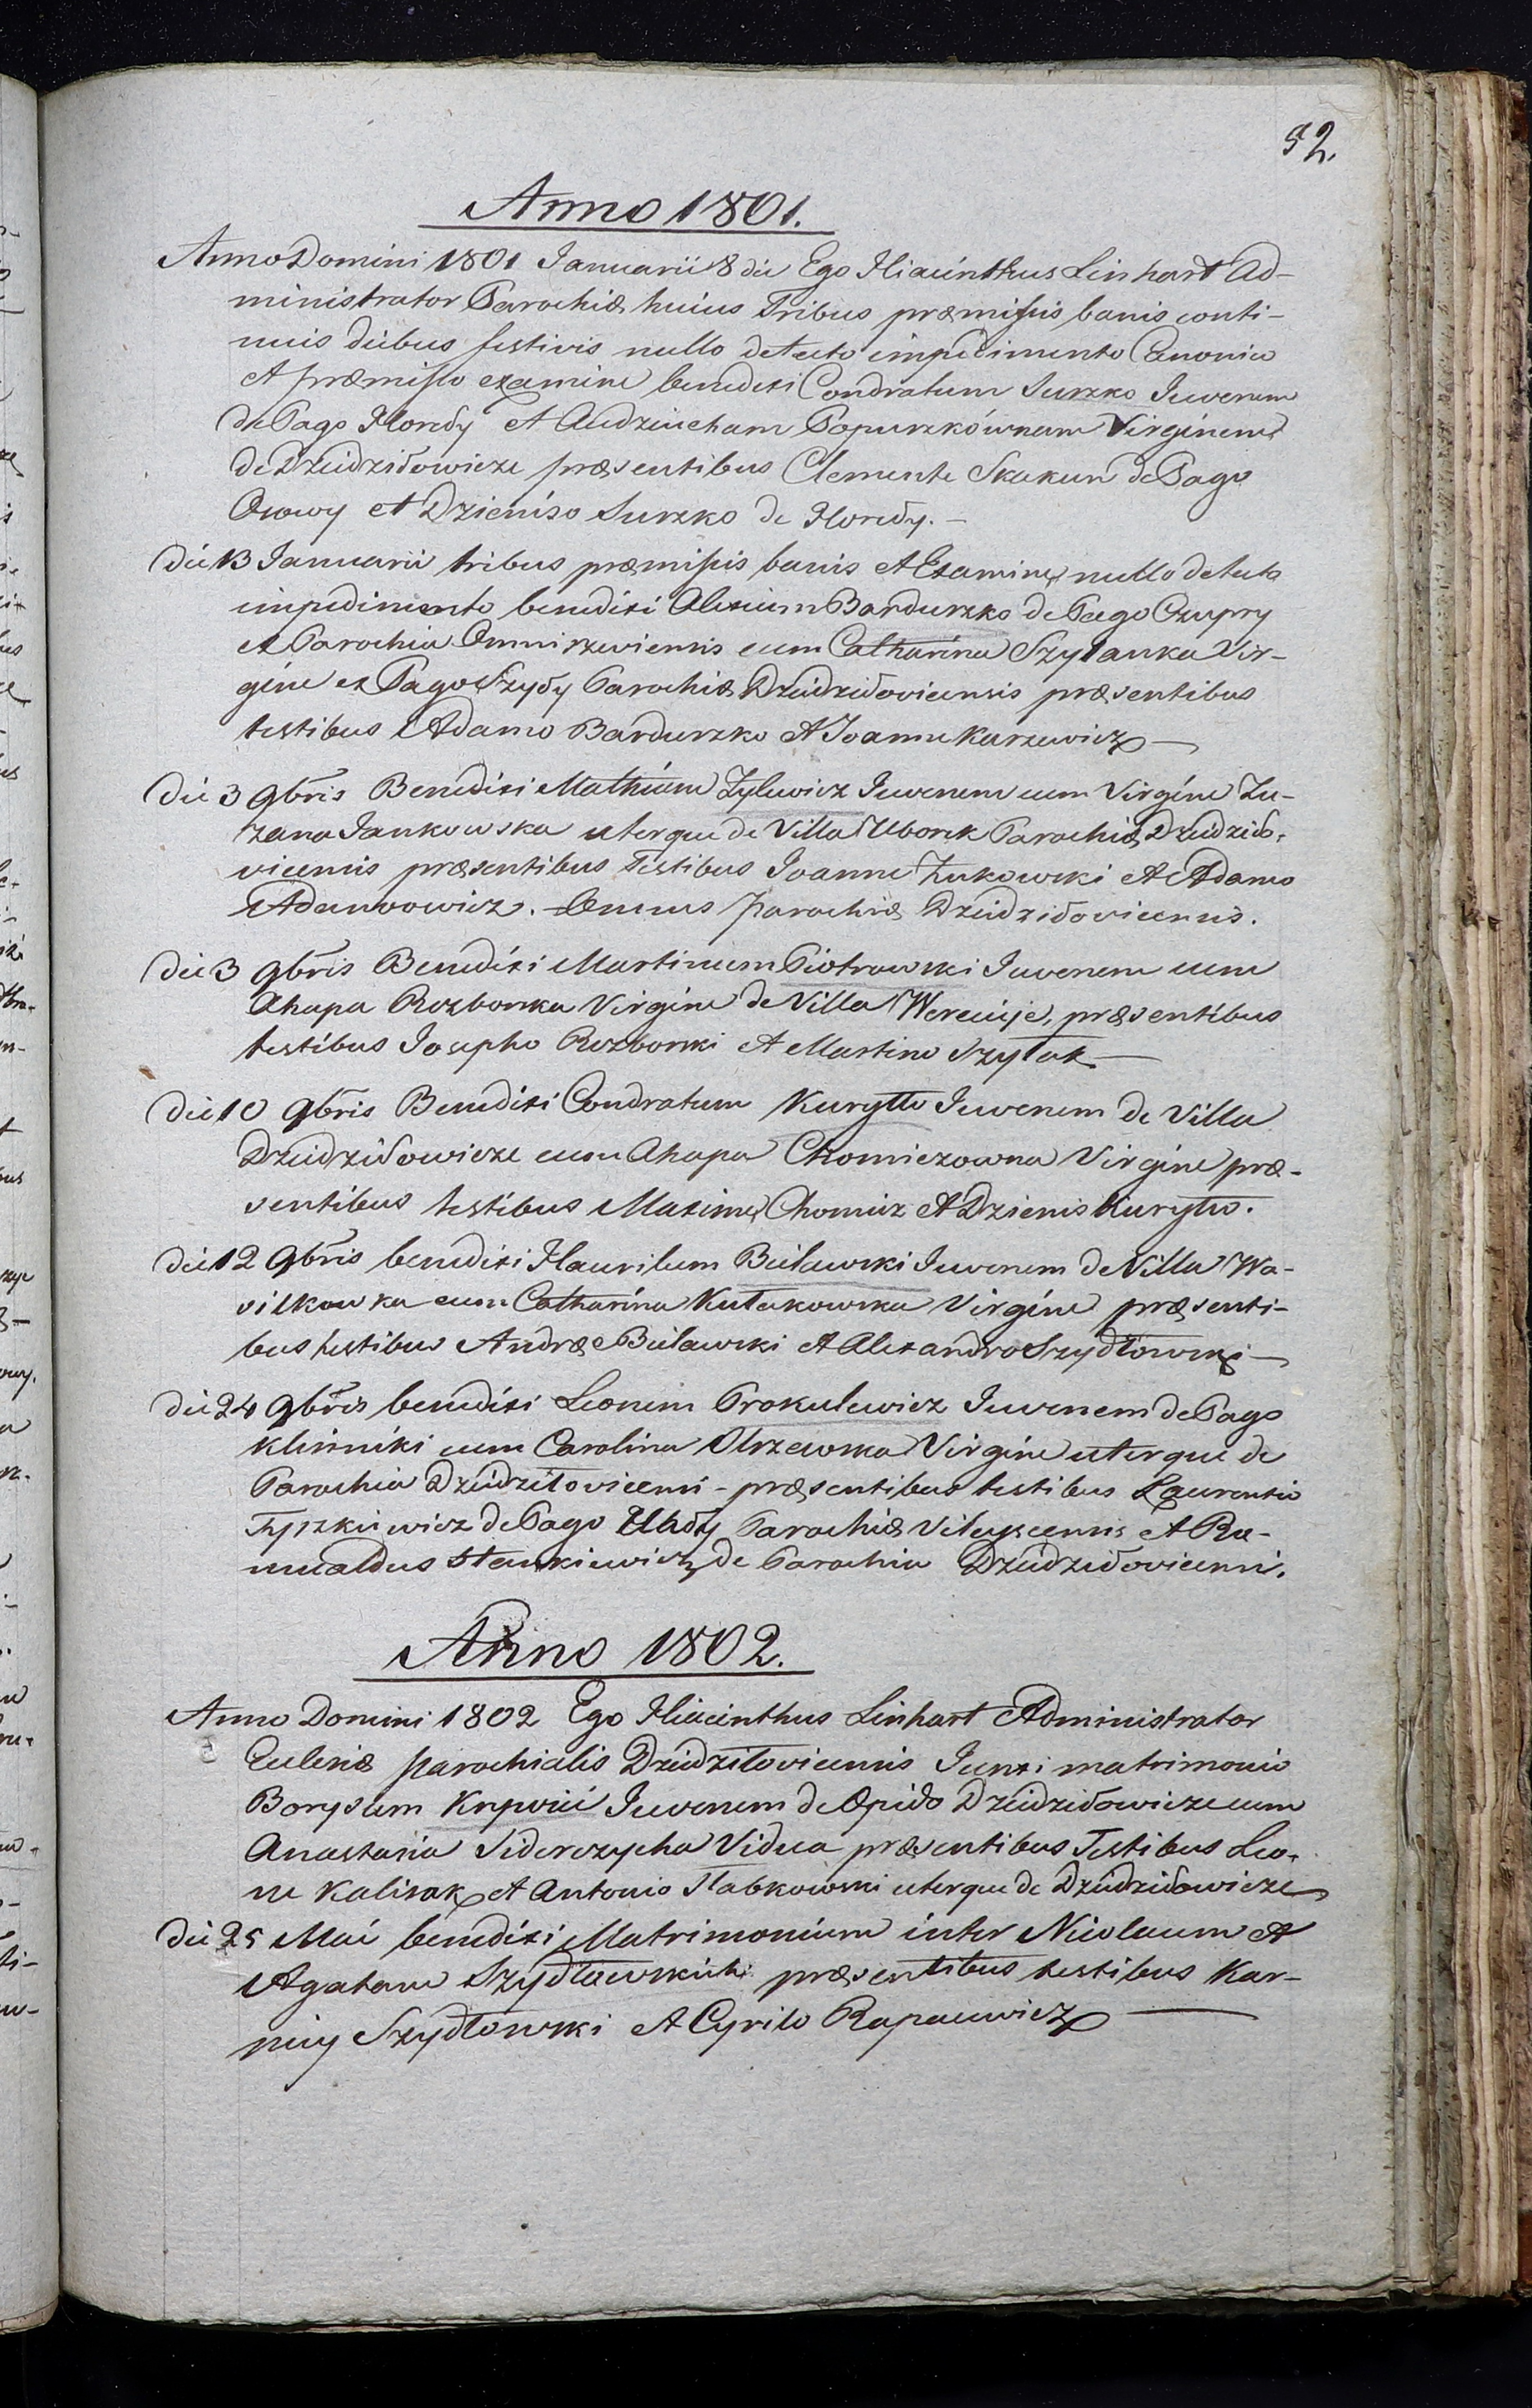 52.
Anno 1801.
Anno Domini 1801 Januarii 8 die Ego Hiacinthus Linhart Ad-
ministrator Parochiæ huius Tribus præmissis banis conti-
nuis diebus festivis nullo detecto impedimento Canonico
et præmisso examine benedixi Condratum Surzko Juvenem
de Pago Horedy et Audziucham Popurzkównam Virginem
de Dziedziłowicze præsentibus Clemente Skakun de Pago
Osowy et Dzieniso Surzko de Horedy. —
Die 13 Januarii tribus præmissis banis et Examine nullo detecto
impedimento benedixi Alexium Bardurzko de Pago Czupry
ex Parochia Omniszewiensis cum Catharina Szyłanka Vir-
gine ex Pago Szyły Parochiæ Dziedziłovicensis præsentibus
testibus Adamo Bardurzko et Joanne Karzewicz —
Die 3 9bris Benedixi Mathæum Zylewicz Juvenem cum Virgine Zu-
zana Jankowska uterque de Villa Uborek Parochiæ Dziedziło-
vicensis præsentibus Testibus Joanne Zukowski et Adamo
Adamowicz. Omnes parochiæ Dziedziłovicensis.
Die 3 9bris Benedixi Martinum Piotrowski Juvenem cum
Ahapa Rozborska Virgine de Villa Wereiije, præsentibus
testibus Josepho Rozborski et Martino Szyłak —
Die 10 9bris Benedixi Condratum Kuryłło Juvenem de Villa
Dziedziłowicze cum Ahapa Chomiczowna Virgine præ-
sentibus testibus Maxime Chomicz et Dzienis Kuryło.
Die 12 9bris benedixi Haurilum Bulawski Juvenem de Villa Wa-
silkowka cum Catharina Kułakowska Virgine præsenti-
bus testibus Andræ Bulawski et Alexandro Szydłowski —
Die 24 9bris benedixi Leonem Prokulewicz Juvenem de Pago
Klinniki cum Carolina Olszewska Virgine uterque de
Parochia Dziedziłovicensi - præsentibus testibus Laurentio
Tyszkiewicz de Pago Uhły Parochiæ Vileyscensis et Ro-
mualdus Stankiewicz de Parochia Dziedziłovicensi.
Anno 1802.
Anno Domini 1802 Ego Hiacinthus Linhart Administrator
Eclesiæ parochialis Dziedziłovicensis Junxi matrimonio
Borysum Krpwii Juvenem de Opido Dziedziłowicze cum
Anastasia Siderczycha Vidua præsentibus Testibus Leo-
ne Kalisak et Antonio Słabkowski uterque de Dziedziłowicze
Die 25 Mai benedixi Matrimonium inter Nicolaum et
Agatam Szydłowskich præsentibus testibus Kar-
niy Szydłowski et Cyrilo Rapacewicz —